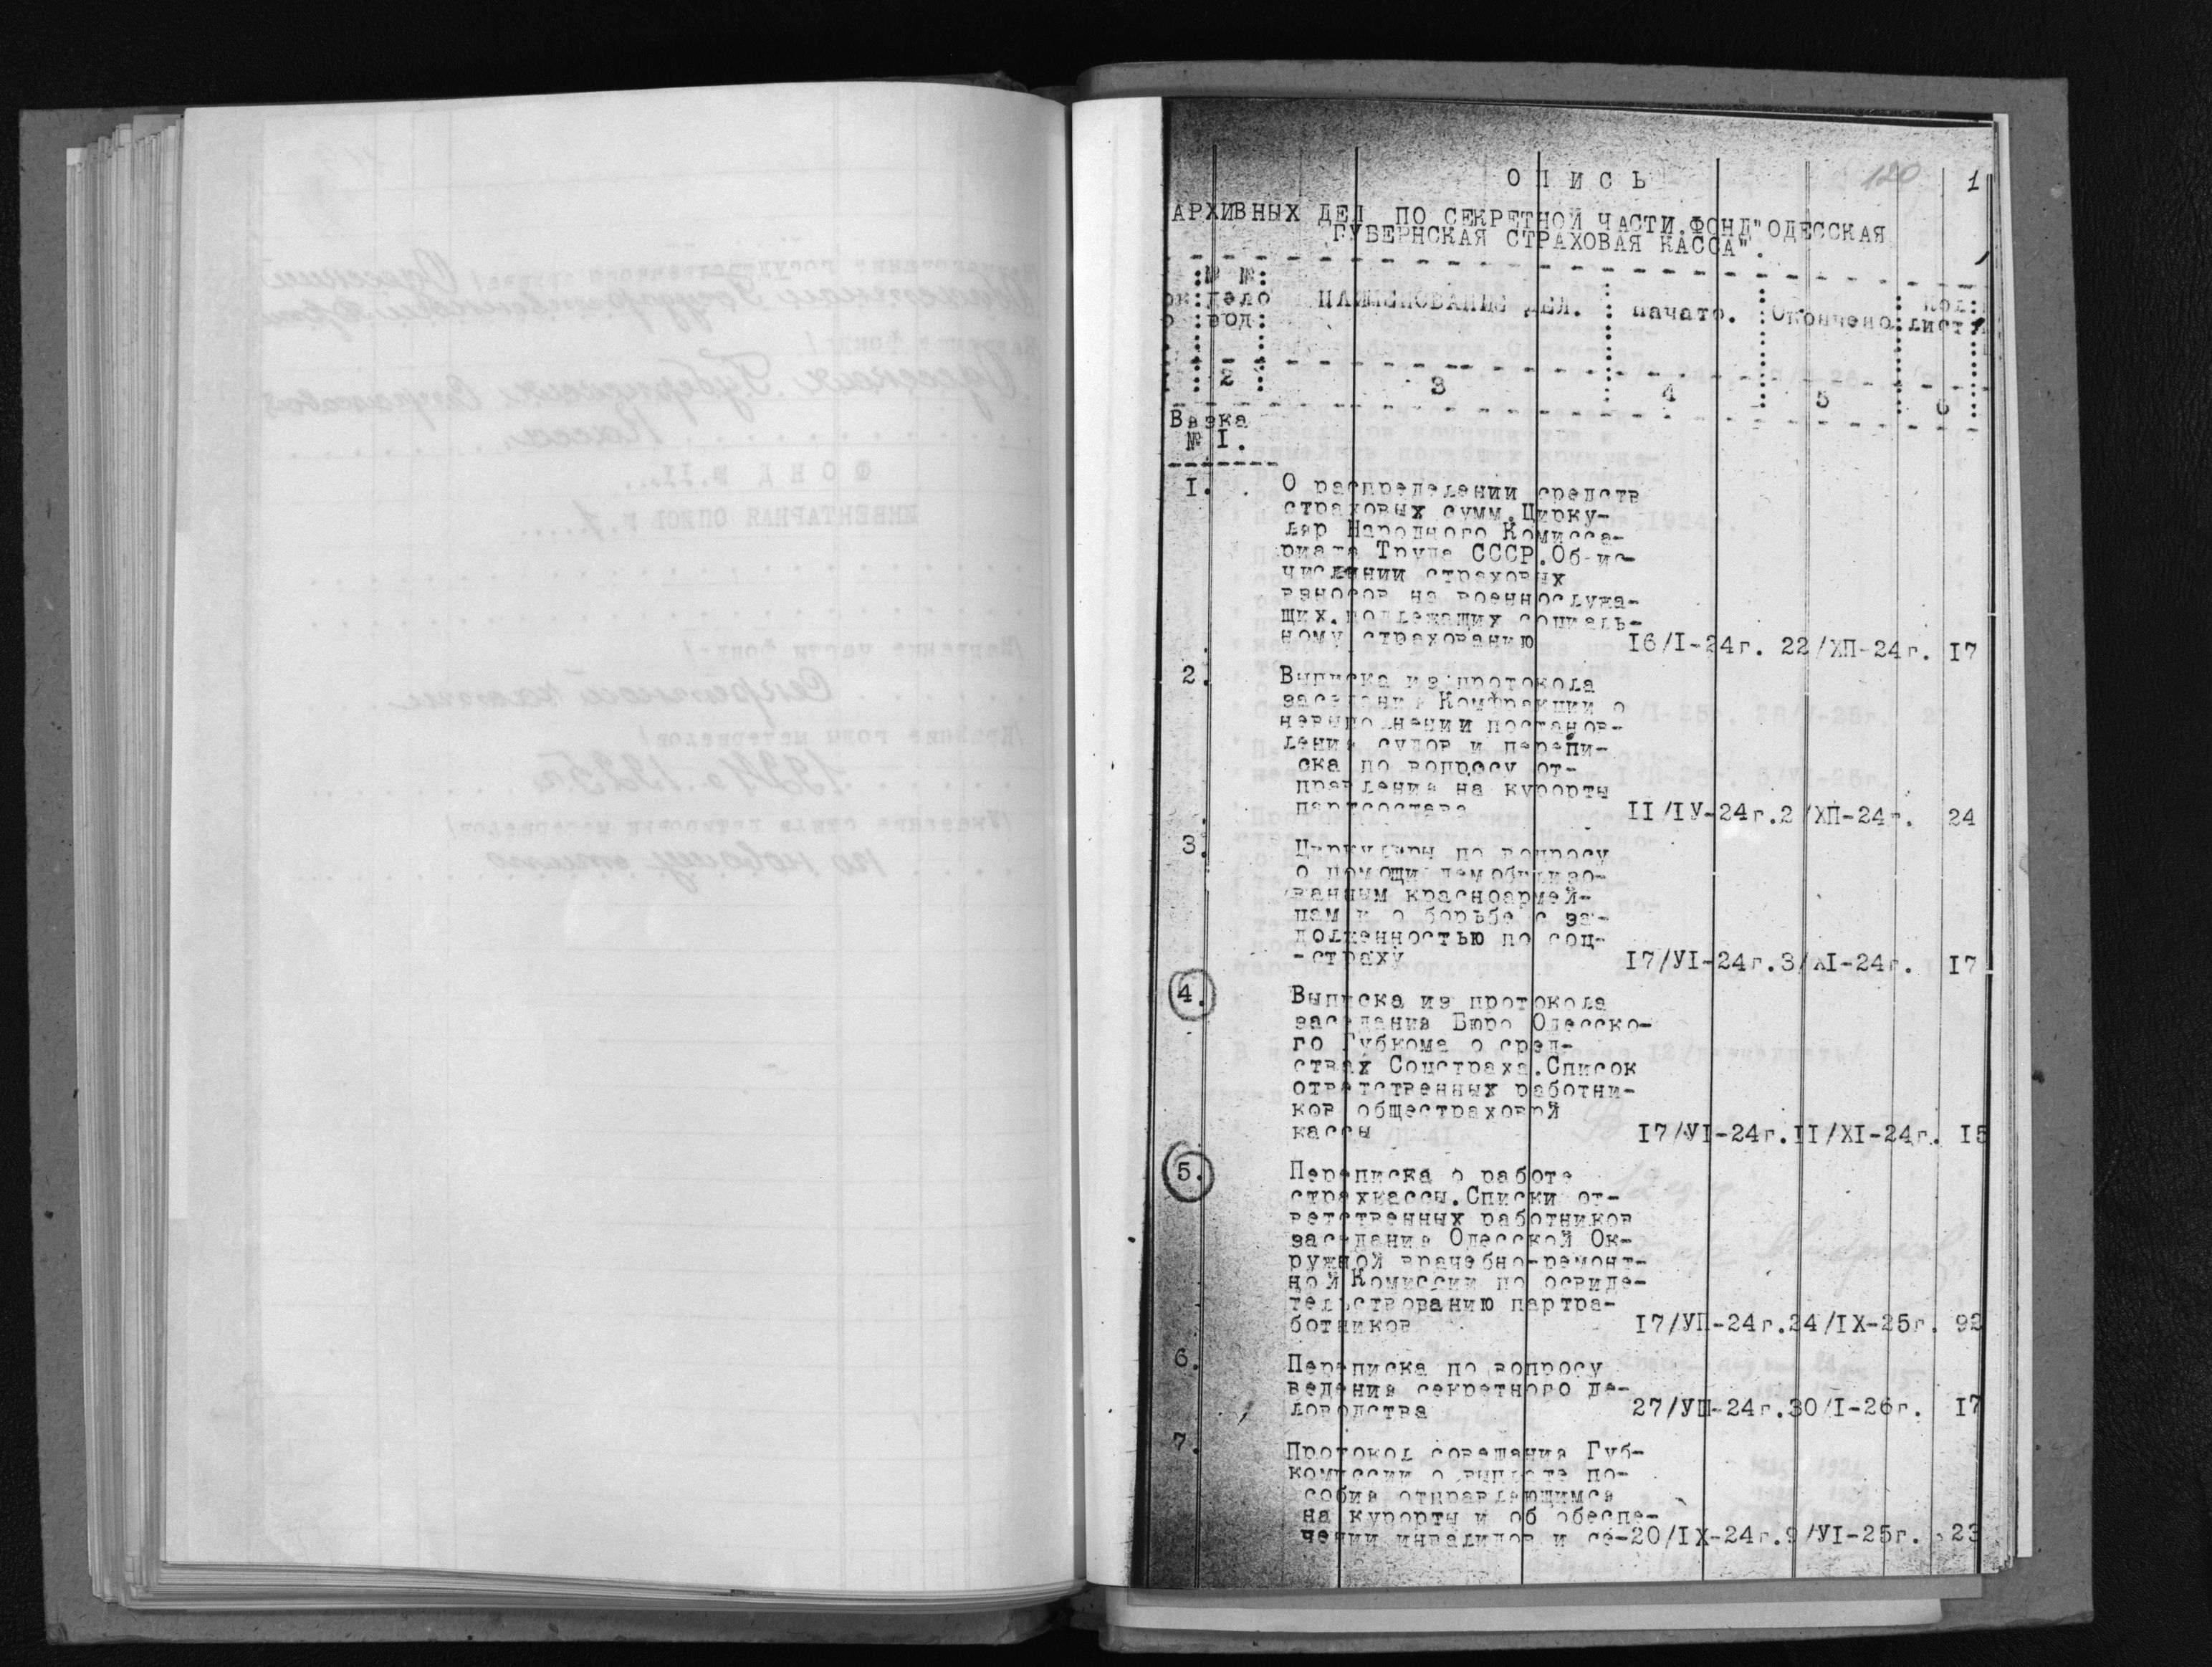 120
1
О П И С Ь
АРХИВНЫХ ДЕЛ ПО СЕКРЕТНОЙ ЧАСТИ.ФОНД"ОДЕССКАЯ
ГУБЕРНСКАЯ СТРАХОВАЯ КАССА".
№ №
НАИМЕНОВАНИЕ ДЕЛ. Начато. Окончено кол:
лист
2 3 4 5 6
Вязка
№ I.
I. О распределении средств
страховых сумм.Цирку-
ляр Народного Комисса-
риата Труда СССР.Об-ис-
числении страховых
взносов на военнослужа-
щих.подлежащих социаль-
ному страхованию 16/I-24г. 22/ХП-24г. 17
2. Выписка из протокола
заседания Комфракции о
невыполнении постанов-
ления судов и перепи-
ска по вопросу от-
правления на курорты
партсостава II/IУ-24г.2/ХП-24г. 24
3. Циркуляры по вопросу
о помощи демобилизо-
ванным красноармей-
цам и о борьбе с за-
долженностью по соц-
-страху 17/УI-24г.3/XI-24г. 17
4. Выписка из протокола
заседания Бюро Одесско-
го Губкома о сред-
ствах Соцстраха.Список
ответственных работни-
ков общестраховой
кассы 17/УI-24г.II/XI-24г. 15
5. Переписка о работе
страхкассы.Списки от-
ветственных работников
заседания Одесской Ок-
ружной врачебно-ремонт-
ной Комиссии по освиде-
тельствованию партра-
ботников 17/УП-24г.24/IX-25г. 92
6. Переписка по вопросу
ведения секретного де-
ловодства 27/УШ-24г.30/I-26г. 17
7. Протокол совещания Губ-
комиссии о выплате по-
собия отправляющимся
на курорты и об обеспе-
чении инвалидов и се-20/IX-24г.9/УI-25г. 23